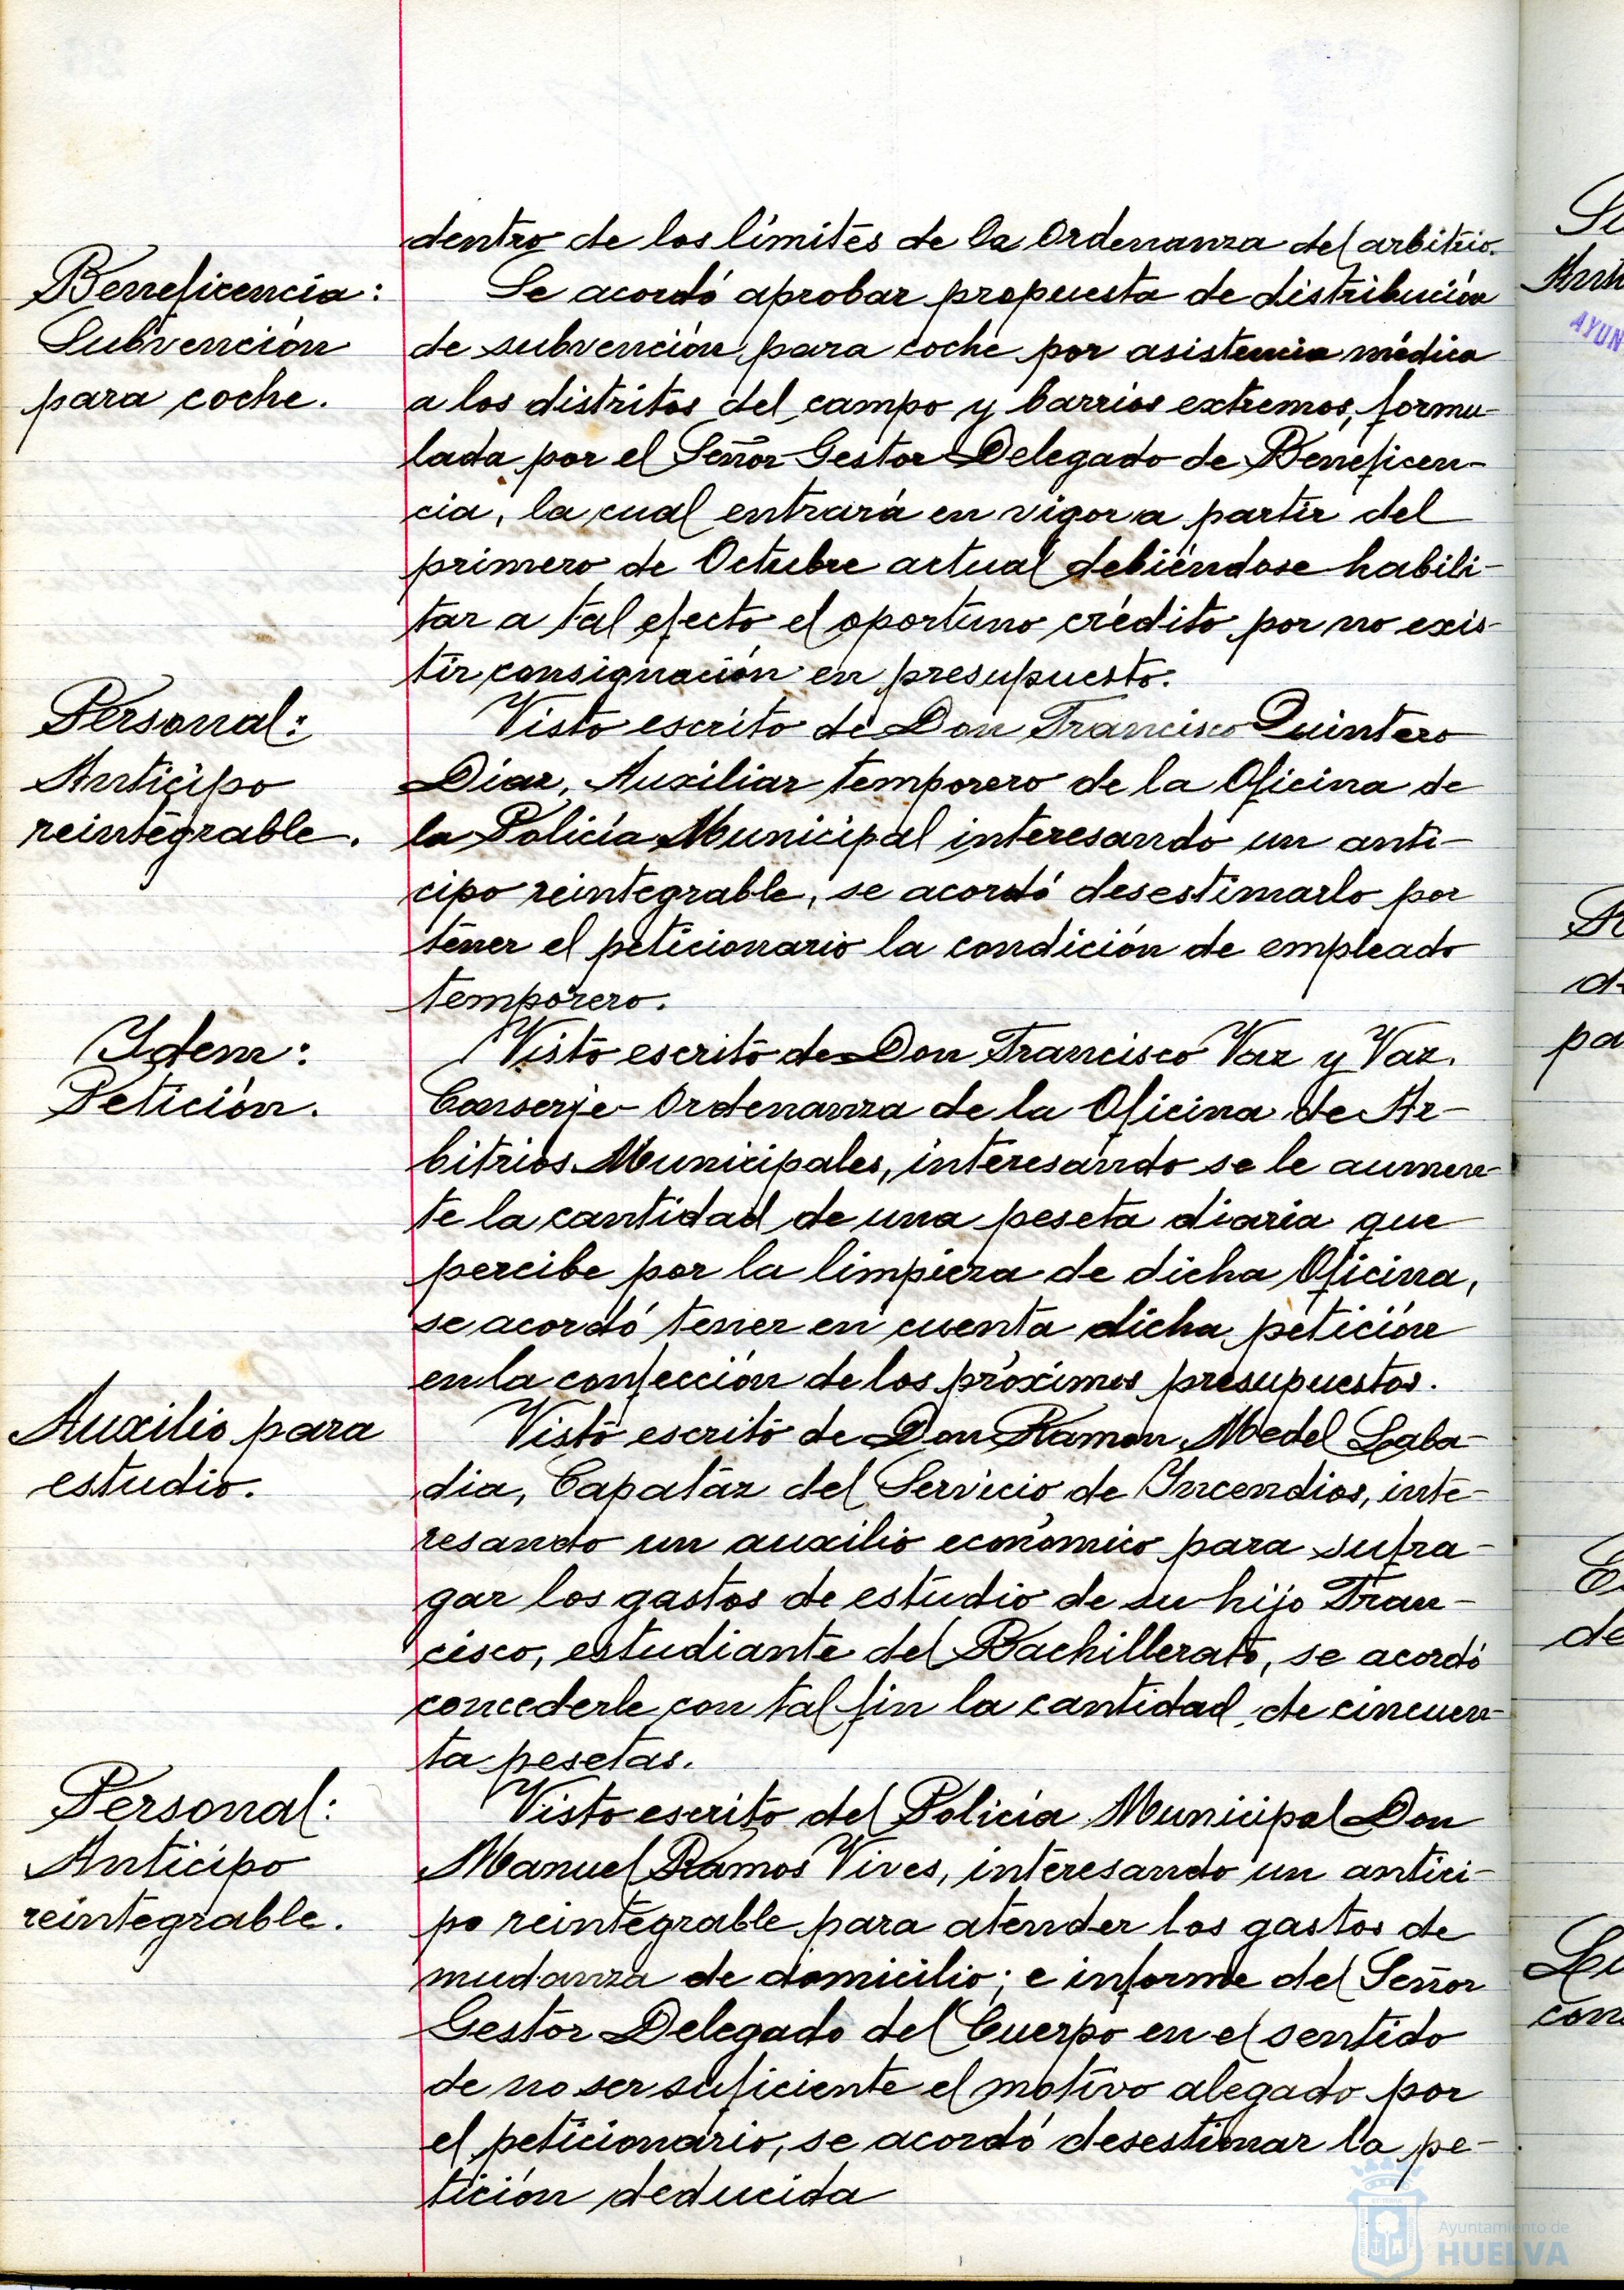 dentro de los límites de la Ordenanza del arbitrio.
Beneficencia:
Subvención
para coche.
Se acordó aprobar propuesta de distribución
de subvención para coche por asistencia médica
a los distritos del campo y barrios extremos, formu-
lada por el Señor Gestor Delegado de Beneficen-
cia, la cual entrará en vigor a partir del
primero de Octubre actual debiéndose habili-
tar a tal efecto el oportuno crédito por no exis-
tir consignación en presupuesto.
Personal:
Anticipo
reintegrable.
Visto escrito de Don Francisco Quintero
Diaz, Auxiliar temporero de la Oficina de
la Policía Municipal interesando un anti-
cipo reintegrable, se acordó desestimarlo por
tener el peticionario la condición de empleado
temporero.
Idem:
Petición.
Visto escrito de Don Francisco Vaz y Vaz.
Conserje-Ordenanza de la Oficina de Ar-
bitrios Municipales, interesando se le aumen-
te la cantidad de una peseta diaria que
percibe por la limpieza de dicha Oficina,
se acordó tener en cuenta dicha petición
en la confección de los próximos presupuestos.
Auxilio para
estudio.
Visto escrito de Don Ramon Medel Laba-
dia, Capatáz del Servicio de Incendios, inte-
resando un auxilio económico para sufra-
gar los gastos de estudio de su hijo Fran-
cisco, estudiante del Bachillerato, se acordó
concederle con tal fin la cantidad de cincuen-
ta pesetas.
Personal:
Anticipo
reintegrable.
Visto escrito del Policía Municipal Don
Manuel Ramos Vives, interesando un antici-
po reintegrable para atender los gastos de
mudanza de domicilio; e informe del Señor
Gestor Delegado del Cuerpo en el sentido
de no ser suficiente el motivo alegado por
el peticionario, se acordó desestimar la pe-
tición deducida
AYUN
pa
de
Ayuntamiento de
HUELVA